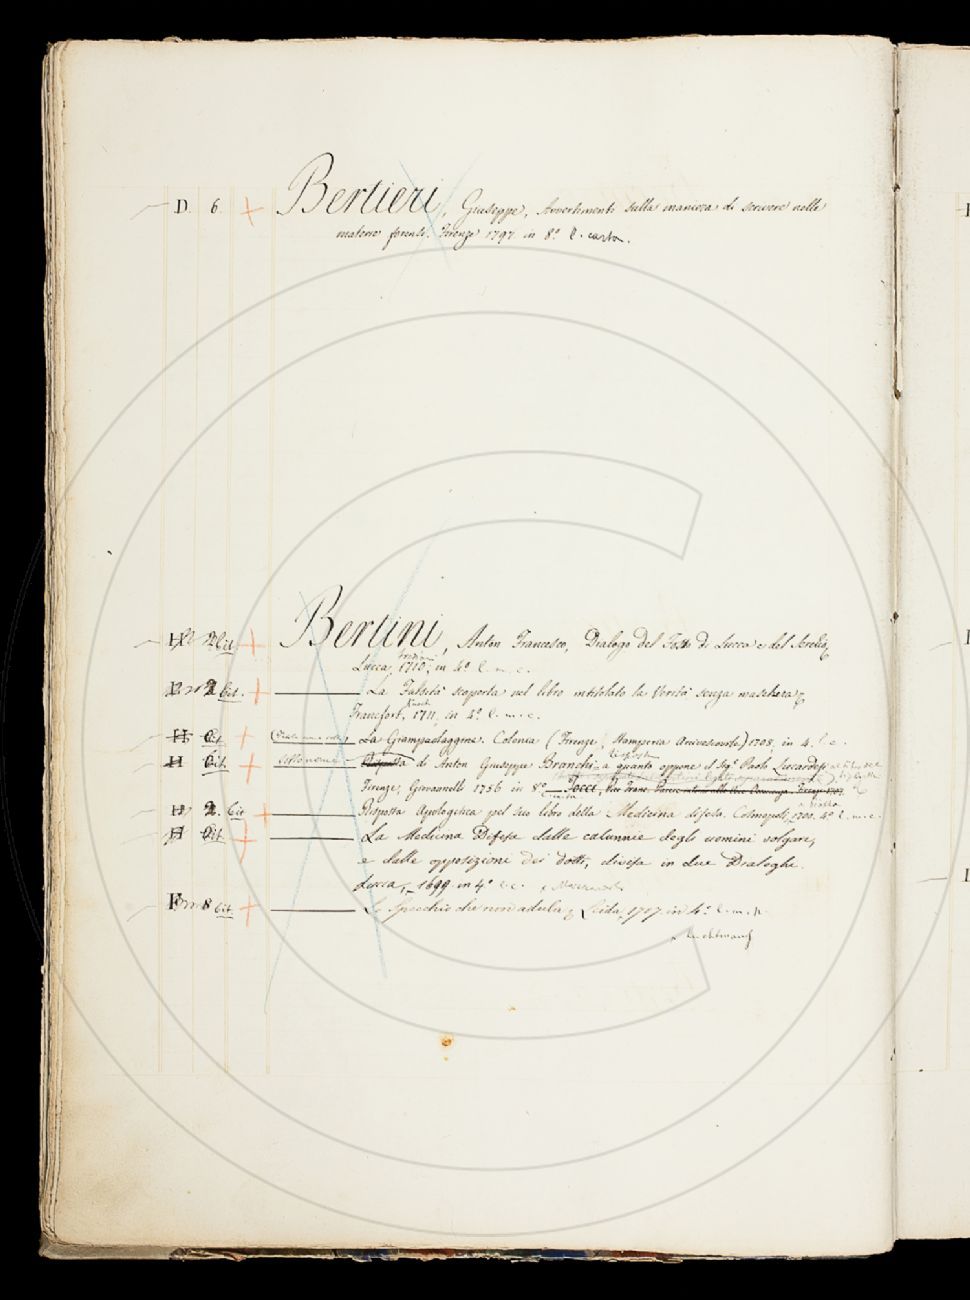 D. 6 Bertieri, Giuseppe, Avvertimenti sulla maniera di scrivere nelle
materie forensi. Firenze 1797. in 8.º l. carta.
Bit Bertini, Anton Francesco, Dialogo del Fosso di Lucca e del Serchio
Lucca, 1710, in 4.º l. m. c.
2 Bit. La Falsità scoperta nel libro intitolato la Verità senza maschera
Francfort, 1711, in 4.º l. m. c.
H Bit La Giampaolaggine. Colonia (Firenze, Stamperia Arcivescovile) 1708, in 4. l. c.
H Bit. Risposta di Anton Giuseppe Branchi a quanto oppone il Sig.r Paolo
Firenze, Giovannelli 1756 in 8.º
2. Bit Risposta Apologetica pel suo libro della Medicina difesa. Cosmopoli, 1700. 4.º l. m. c.
H Bit La Medicina Difesa dalle calunnie degli uomini volgari,
e dalle opposizioni dei dotti, divisa in due Dialoghi.
Lucca, 1699 in 4.º l. c. x Marescandoli
8 Bit Lo Specchio che non adula, Leida, 1707. in 4.º l. m. p.